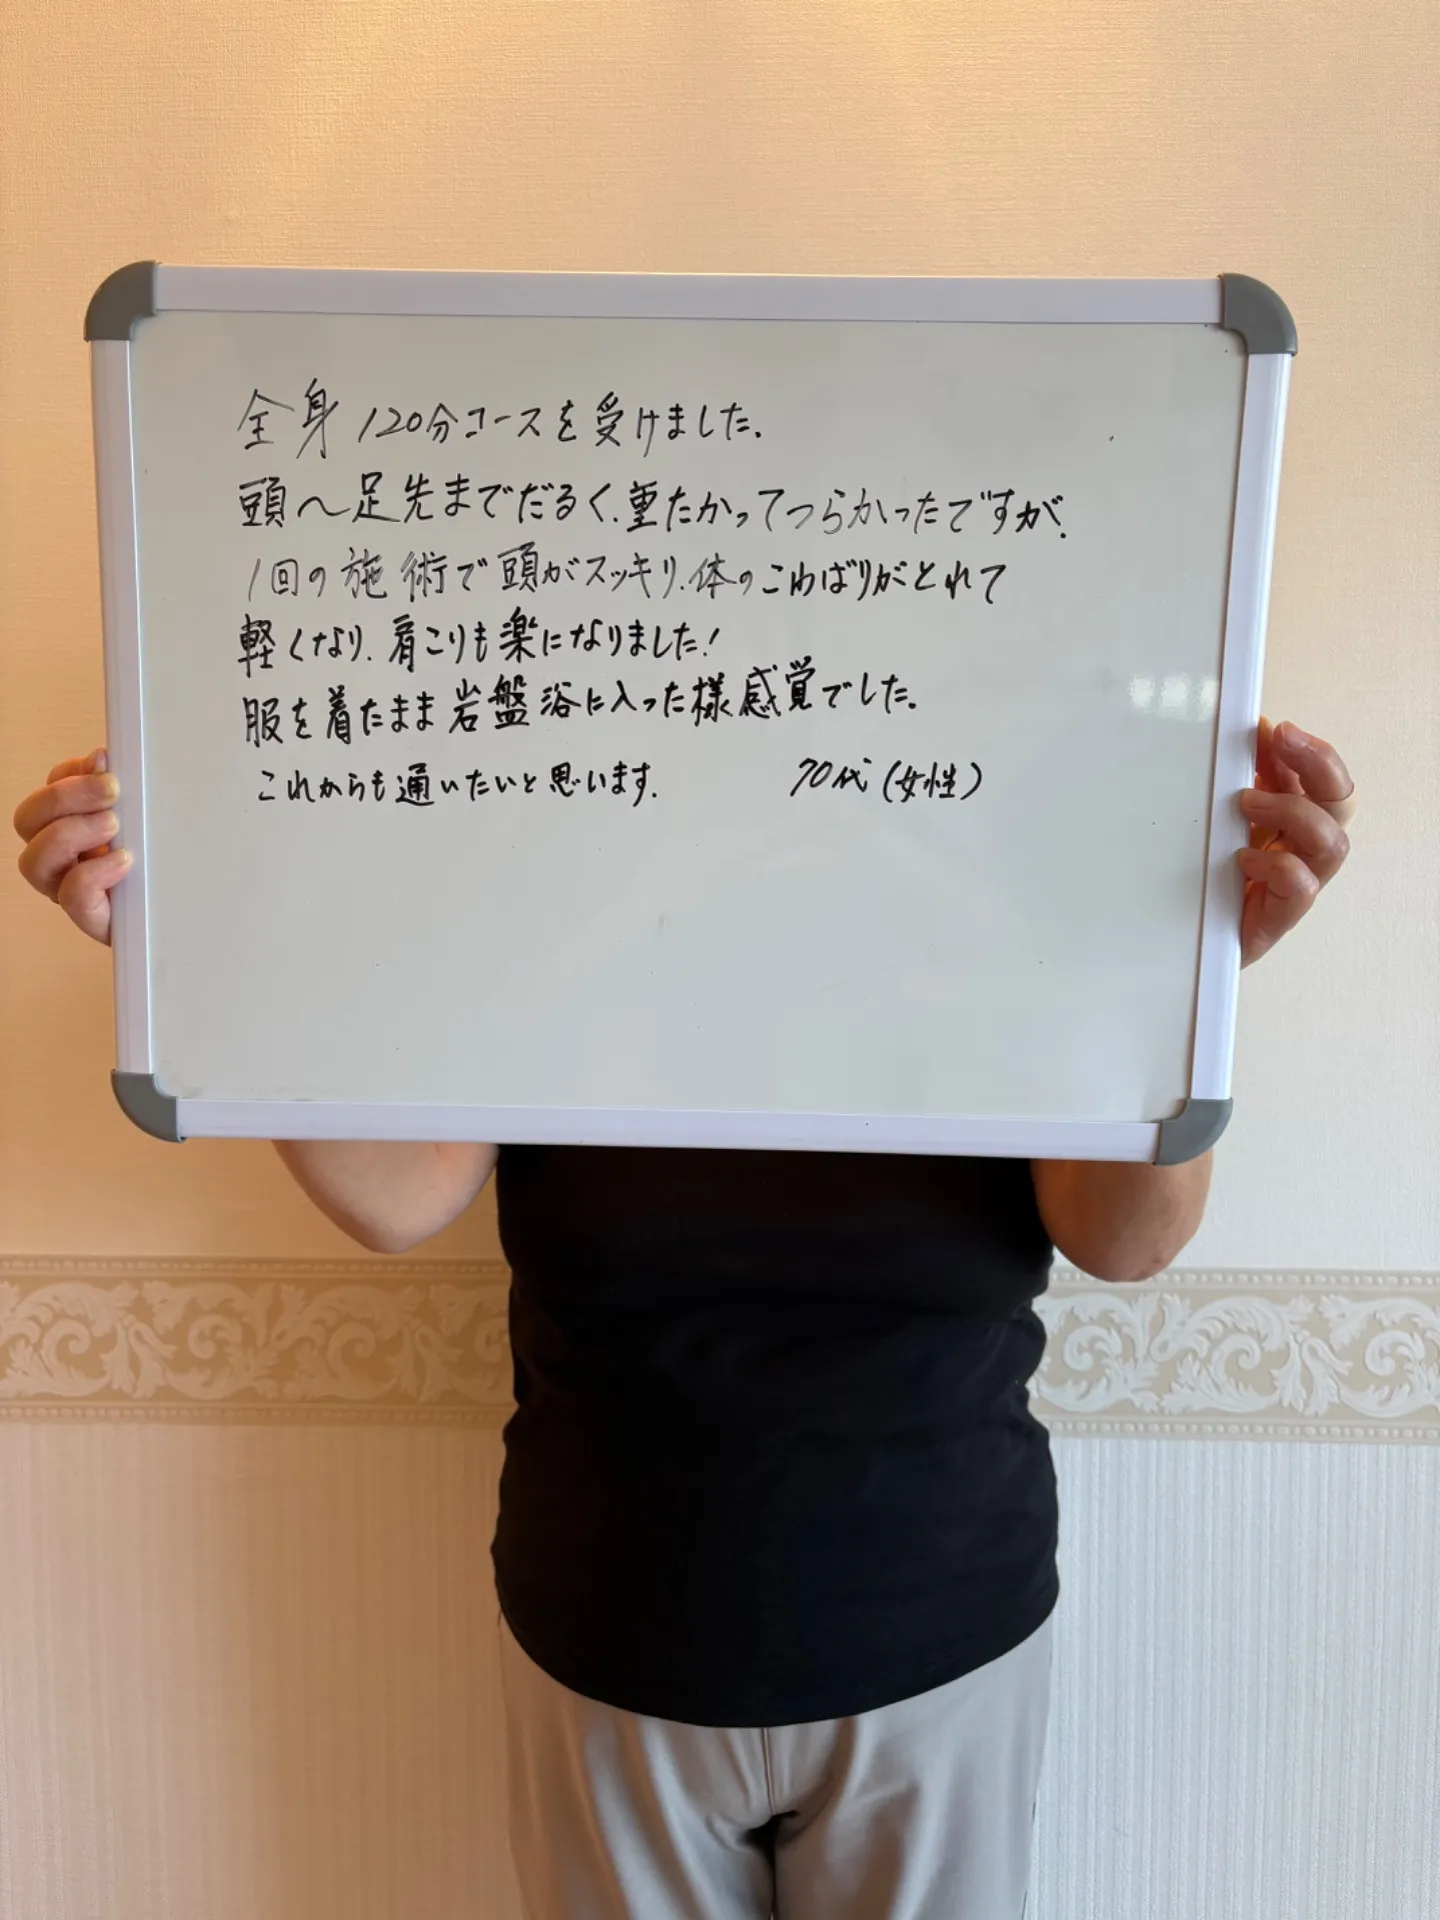 全身120分コースを受けました。
頭〜足先までだるく、重たかってつらかったですが、
1回の施術で頭がスッキリ、体のこわばりがとれて
軽くなり、肩こりも楽になりました!
服を着たまま岩盤浴に入った様感覚でした。
これからも通いたいと思います。 70代(女性)